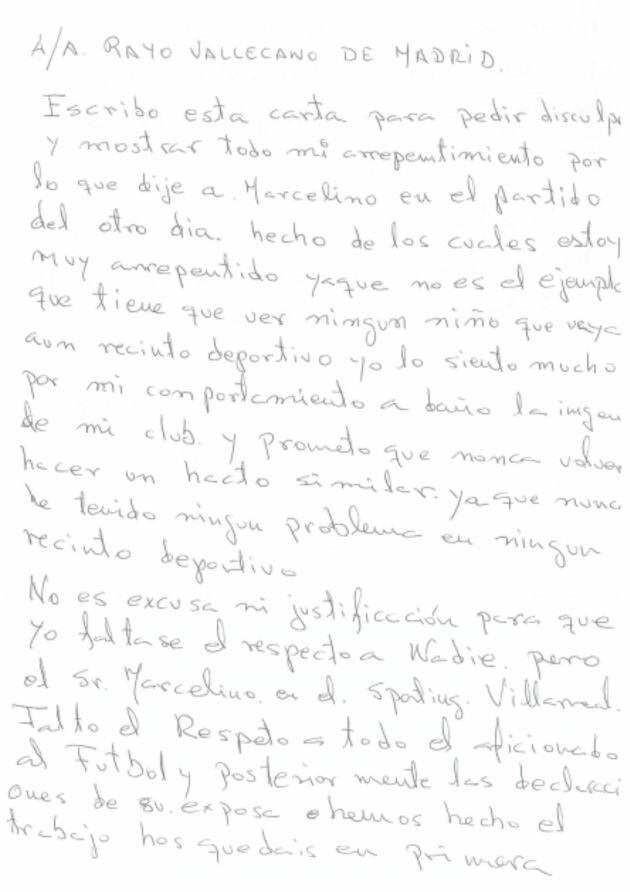 A/A. RAYO VALLECANO DE MADRID.
Escribo esta carta para pedir disculpa
y mostrar todo mi arrepentimiento por
lo que dije a. Marcelino en el partido
del otro dia. hecho de los cuales estoy
muy arrepentido yaque no es el ejemplo
que tiene que ver ningun niño que vaya
aun recinto deportivo yo lo siento mucho
por mi comportamiento a daño la imgen
de mi club. y prometo que nunca volver
hacer un hacto similar. ya que nunca
he tenido ningun problema en ningun
recinto deportivo
No es excusa ni justificación para que
yo faltase el respecto a Nadie. pero
el Sr. Marcelino. en el. Sporting. Villarreal.
Falto el Respeto a todo el aficionado
al Futbol y posterior mente las declaraci
ones de su. exposa ehemos hecho el
trabajo hos quedais en primera